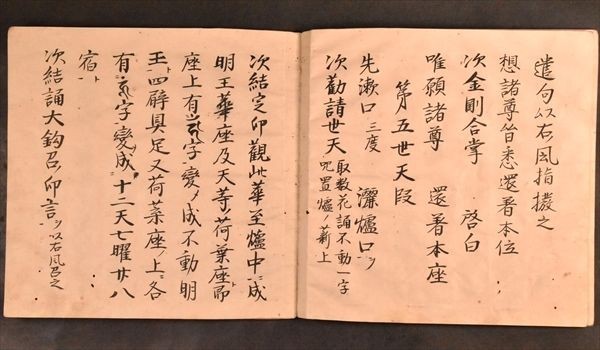 遣句以右風指撥之
想諸尊皆悉還著本位
次金剛合掌　啓白
唯願諸尊　還著本座
第五世天段
先漱口三度　灑爐口ッ
次勧請世天取数花誦不動一字
呪置爐ノ薪上
次結定印觀此華至爐中ニ成
明王華座及天等ノ荷葉座ト即
座上有字変ノ成不動明
王ト四臂具足又荷葉座ノ上ニ各
有字変成十二天七曜廿八
宿ト
次結誦大鈎召印言ッ以右風召之